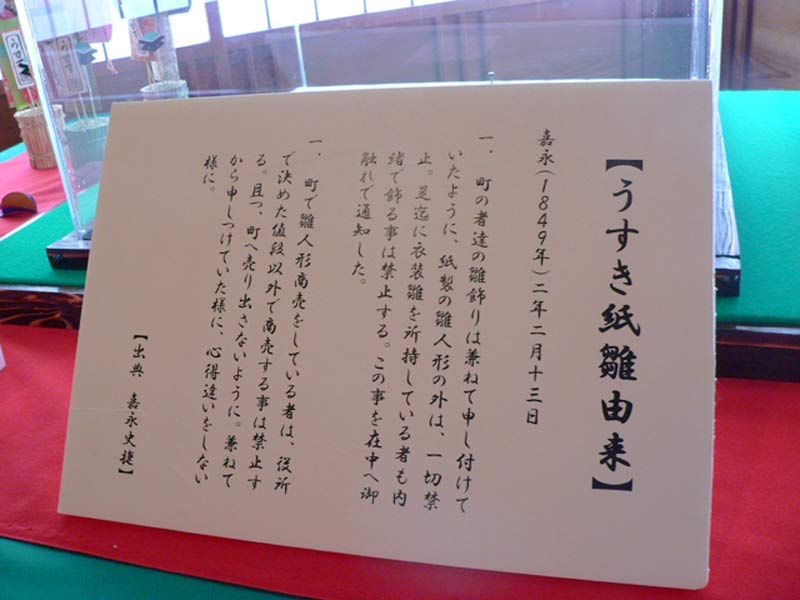 【うすき紙雛由来】
嘉永(1849年)二年二月十三日
一、町の者達の雛飾りは兼ねて申し付けて
いたように、紙製の雛人形の外は、一切禁
止。是迄に衣装雛を所持している者も内
緒で飾る事は禁止する。この事を在中へ御
触れで通知した。
一、町で雛人形商売をしている者は、役所
で決めた値段以外で商売する事は禁止す
る。且つ、町へ売り出さないように。兼ねて
から申しつけていた様に、心得違いをしない
様に。
【出典 嘉永史捷】